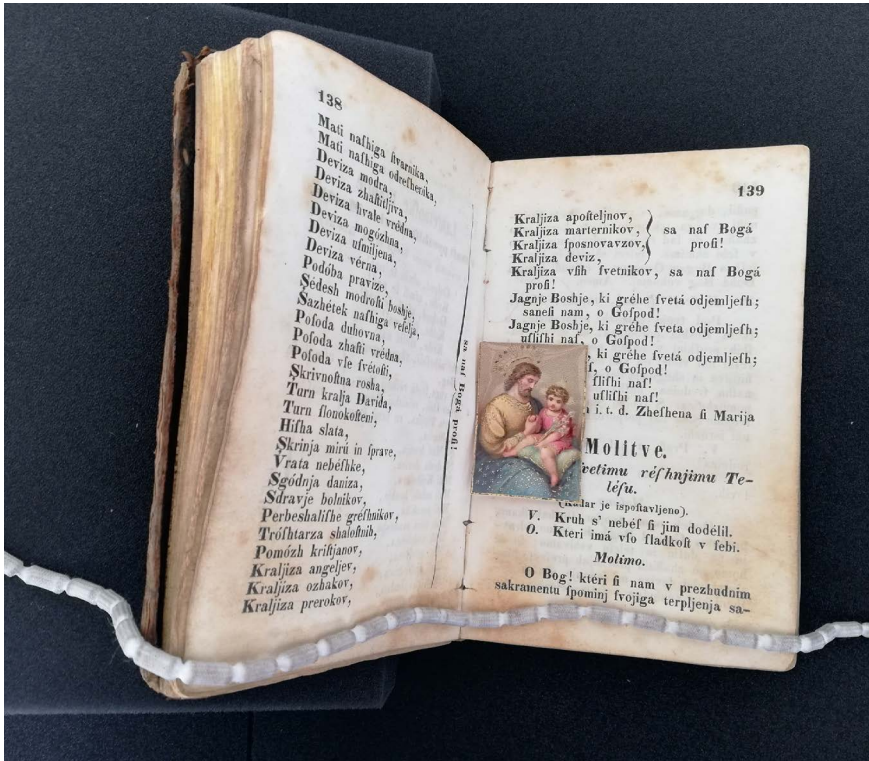 138
Mati naſhiga ſtvarnika,
Mati naſhiga odreſhenika,
Deviza modra,
Deviza zhaſtidljiva,
Deviza hvale vrédna,
Deviza mogózhna,
Deviza uſmiljena,
Deviza vérna,
Podóba pravize,
Sédesh modroſti boshje,
Sazhétek naſhiga veſelja,
Poſoda duhovna,
Poſoda zhaſti vrédna,
Poſoda vſe ſvétoſti,
Skrivnoſtna rosha,
Turn kralja Davida,
Turn ſlonokoſteni,
Hiſha slata,
Skrinja mirú in ſprave,
Vrata nebéſhke,
Sgódnja daniza,
Sdravje bolnikov,
Perbeshaliſhe gréſhnikov,
Tróſhtarza shaloſtnih,
Pomózh kriſtjanov,
Kraljiza angeljev,
Kraljiza ozhakov,
Kraljiza prerokov,
sa naſ Bogá proſi!
139
Kraljiza apoſteljnov,
Kraljiza marternikov, sa naſ Bogá
Kraljiza ſposnovavzov, proſi!
Kraljiza deviz,
Kraljiza vſih ſvetnikov, sa naſ Bogá
proſi!
Jagnje Boshje, ki gréhe ſvetá odjemljeſh;
saneſi nam, o Goſpod!
Jagnje Boshje, ki gréhe ſvetá odjemljeſh;
uſliſhi naſ, o Goſpod!
ki gréhe ſvetá odjemljeſh;
o Goſpod!
ſliſhi naſ!
uſliſhi naſ!
i. t. d. Zheſhena ſi Marija
Molitve.
réſhnjimu Te-
léſu.
je ispoſtavljeno).
V. Kruh s' nebéſ ſi jim dodélil.
O. Kteri imá vſo ſladkoſt v ſebi.
Molimo.
O Bog! ktéri ſi nam v prezhudnim
sakramentu ſpominj ſvojiga terpljenja sa-